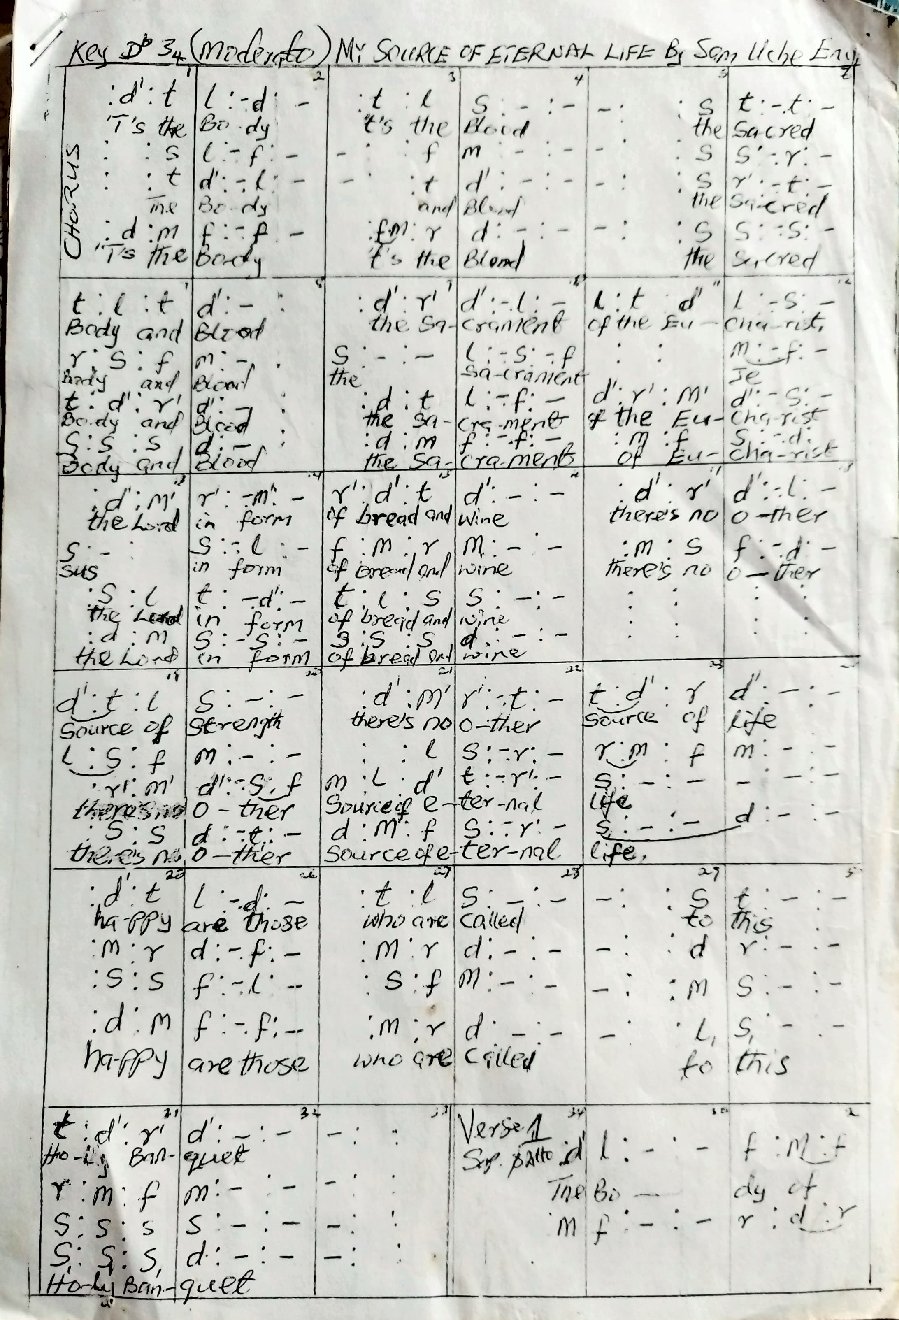 Key Db 3/4 (moderato) MY SOURCE OF ETERNAL LIFE By Sam Uche Eny
CHORUS
:d':t | l:-d:- | :t:l | s:-:- | -: :s | t:-t:-
'T's the | Bo-dy | t's the | Blood | the | Sacred
: :s | l:-f:- | -: :f | m:-:- | -: :s | s:-r:-
: :t | d':-l:- | -: :t | d':-:- | -: :s | r':-t:-
The | Bo-dy | and | Blood | the | Sa-cred
:d:m | f:-f:- | :fm:r | d:-:- | -: :s | s:-s:-
'T's the | Body | t's the | Blood | the | Sacred
t:l:t | d':-: | :d':r' | d':-l:- | l:t:d' | l:-s:-
Body and | Blood | the Sa- | crament | of the Eu- | cha-rist,
r:s:f | m:-: | s:-:- | l:-s:-f | : : | m:-f:-
body and | Blood | the | Sa-crament | Je
t:d':r' | d':-: | :d:t | l:-f:- | d':r':m' | d':-s:-
Body and | Blood | the Sa- | cra-ment | of the Eu- | cha-rist
s:s:s | d:-: | :d:m | f:-f:- | :m:f | s:-d:
Body and | Blood | the Sa- | cra-ments | of Eu- | cha-rist
:d':m' | r':-m':- | r':d':t | d':-:- | :d':r' | d':-l:-
the Lord | in form | of bread and | wine | there's no | o-ther
s:-: | s:-l:- | f:m:r | m:-:- | :m:s | f:-d:-
sus | in form | of bread and | wine | there's no | o-ther
:s:l | t:-d':- | t:l:s | s:-:- | : : | : :
the Lord | in form | of bread and | wine
:d:m | s:-s:- | s:s:s | d:-:- | : : | : :
the Lord | in form | of bread and | wine
d':t:l | s:-:- | :d':m' | r':-t:- | t:d':r | d':-:-
Source of | Strength | there's no | o-ther | Source of | life
l:s:f | m:-:- | : :l | s:-r:- | r:m:f | m:-:-
:r':m' | d':-s:f | m:l:d' | t:-r':- | s:-:- | -:-:-
there's no | O-ther | Source of e- | ter-nal | life
:s:s | d:-t:- | d:m:f | s:-r:- | s:-:- | d:-:-
there's no | O-ther | Source of e- | ter-nal | life.
:d':t | l:-d:- | :t:l | s:-:- | -: :s | t:-:-
ha-ppy | are those | who are | Called | to | this
:m:r | d:-f:- | :m:r | d:-:- | -: :d | r:-:-
:s:s | f:-l:- | :s:f | m:-:- | -: :m | s:-:-
:d:m | f:-f:- | :m:r | d:-:- | -: :l, | s,:-:-
ha-ppy | are those | who are | Called | to | this
t:d':r' | d':-:- | -: : | Verse 1
Ho-ly Ban- | quet | Sop. p Alto :d' | l:-:- | f:m:f
The | Bo — | dy of
r:m:f | m:-:- | -: : | m | f:-:- | r:d:r
s:s:s | s:-:- | -: :
s,:s,:s, | d:-:- | -: :
Ho-ly Ban- | quet